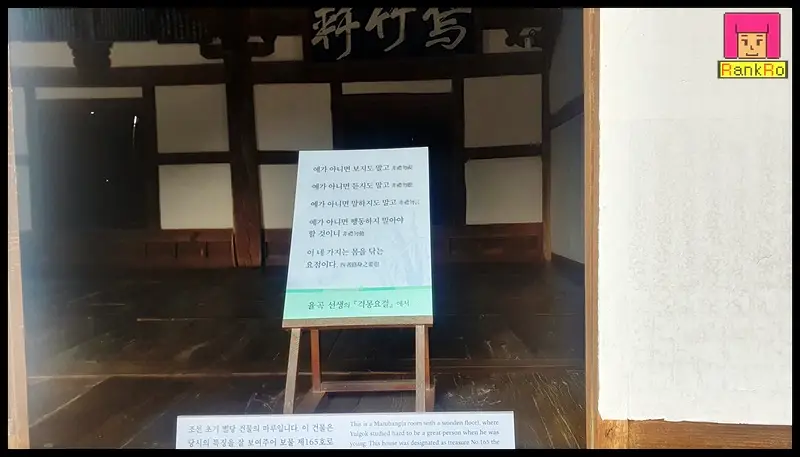 RankRo
예가 아니면 보지도 말고 非禮勿視
예가 아니면 듣지도 말고 非禮勿聽
예가 아니면 말하지도 말고 非禮勿言
예가 아니면 행동하지 말아야
할 것이니 非禮勿動
이 네 가지는 몸을 닦는
요점이다. 四者修身之要也
율곡 선생의 『격몽요결』에서
조선 초기 별당 건물의 마루입니다. 이 건물은
당시의 특징을 잘 보여주어 보물 제165호로
This is a Marubangja room with a wooden floor, where
Yulgok studied hard to be a great person when he was
young. This house was designated as treasure No.165 the